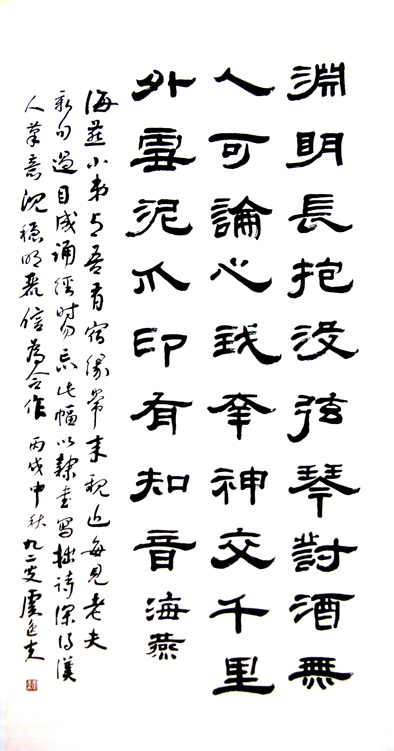 淵明長抱没弦琴對酒無
人可論心我幸神交千里
外雪泥爪印有知音海燕
海燕小弟与吾有宿緣常来親近每見老夫
新句過目成誦經時忘此幅以隸書寫拙詩深得漢
人筆意沉穩明麗信為合作丙戌中秋九二叟虞逸夫